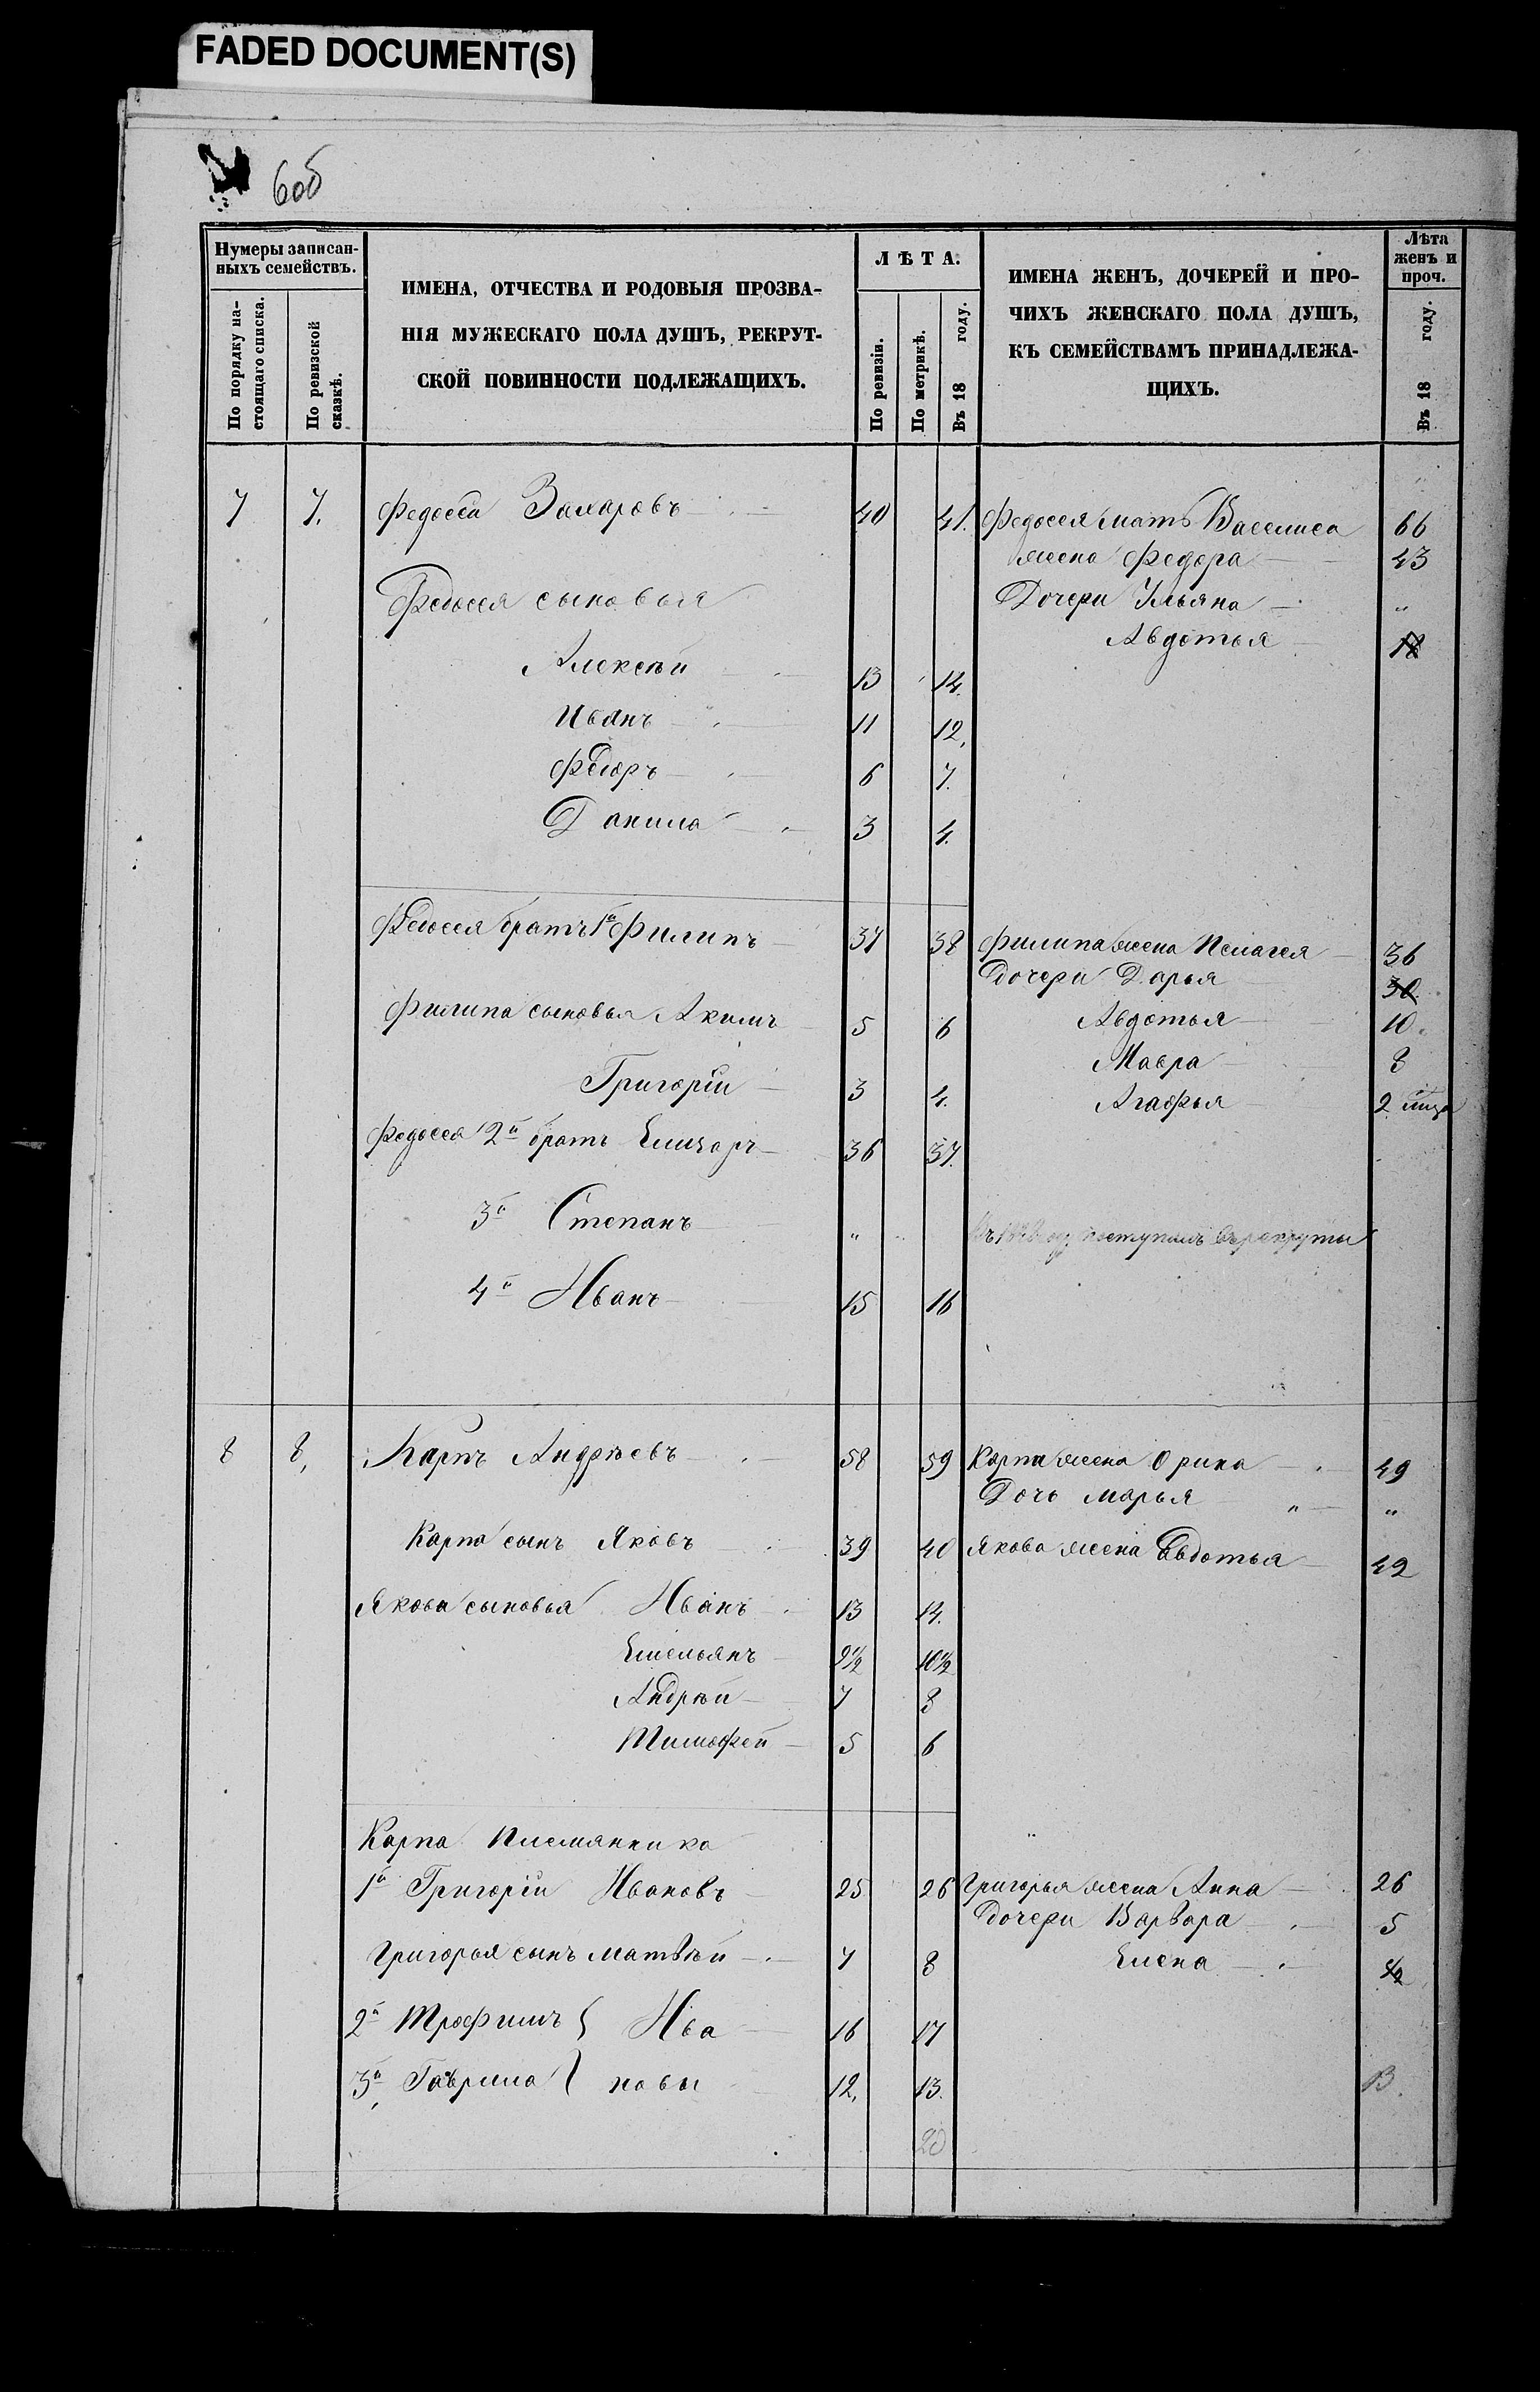 FADED DOCUMENT(S)
6об
Нумеры записан-
ныхъ семействъ.
По порядку на-
стоящаго списка.
По ревизской
сказкѣ.
ИМЕНА, ОТЧЕСТВА И РОДОВЫЯ ПРОЗВА-
НІЯ МУЖЕСКАГО ПОЛА ДУШЪ, РЕКРУТ-
СКОЙ ПОВИННОСТИ ПОДЛЕЖАЩИХЪ.
ЛѢТА.
По ревизіи.
По метрикѣ.
Въ 18 году.
ИМЕНА ЖЕНЪ, ДОЧЕРЕЙ И ПРО-
ЧИХЪ ЖЕНСКАГО ПОЛА ДУШЪ,
КЪ СЕМЕЙСТВАМЪ ПРИНАДЛЕЖА-
ЩИХЪ.
Лѣта
женъ и
проч.
Въ 18 году.
7 7. Федосей Захаровъ 40 41. Федосея мать Василиса 66
жена Федора 43
Федосея сыновья Дочери Ульяна "
Авдотья
Алексѣй 13 14.
Иванъ 11 12.
Федоръ 6 7.
Данила 3 4.
Федосея братъ 1й Филипъ 37 38 Филипа жена Пелагея 36
Дочери Дарья
Филипа сыновья Акимъ 5 6 Авдотья 10.
Мавра 8
Григорій 3 4. Агафья 2
Федосея 2й братъ Елизаръ 36 37.
3й Степанъ " поступилъ въ рекруты
4й Иванъ 15 16
8 8, Карпъ Андрѣевъ 58 59 Карпа жена Орина 49
Дочь Марья " "
Карпа сынъ Яковъ 39 40 Якова жена Авдотья 42
Якова сыновья Иванъ 13 14.
Емельянъ 9½ 10½
Андрѣй 7 8
Тимофей 5 6
Карпа племянника
1й Григорій Ивановъ 25 26 Григорья жена Анна 26
Дочери Варвара 5
Григорья сынъ Матвѣй 7 8 Елена ½
2й Трофимъ { Ива 16 17
3й, Гаврила { новы 12, 13. 13.
20